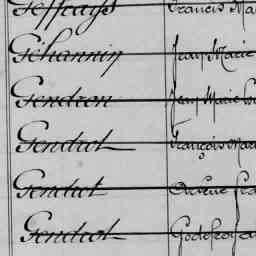 Geffrays Francis Ma
Géhannin Jean Marie
Gendron Jean Marie
Gendrot François Mar
Gendrot
Gendrot Godefroy